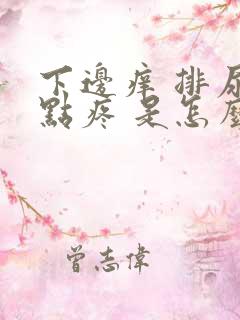 下邊痒 排尿
點疼 是怎麼
曾志偉